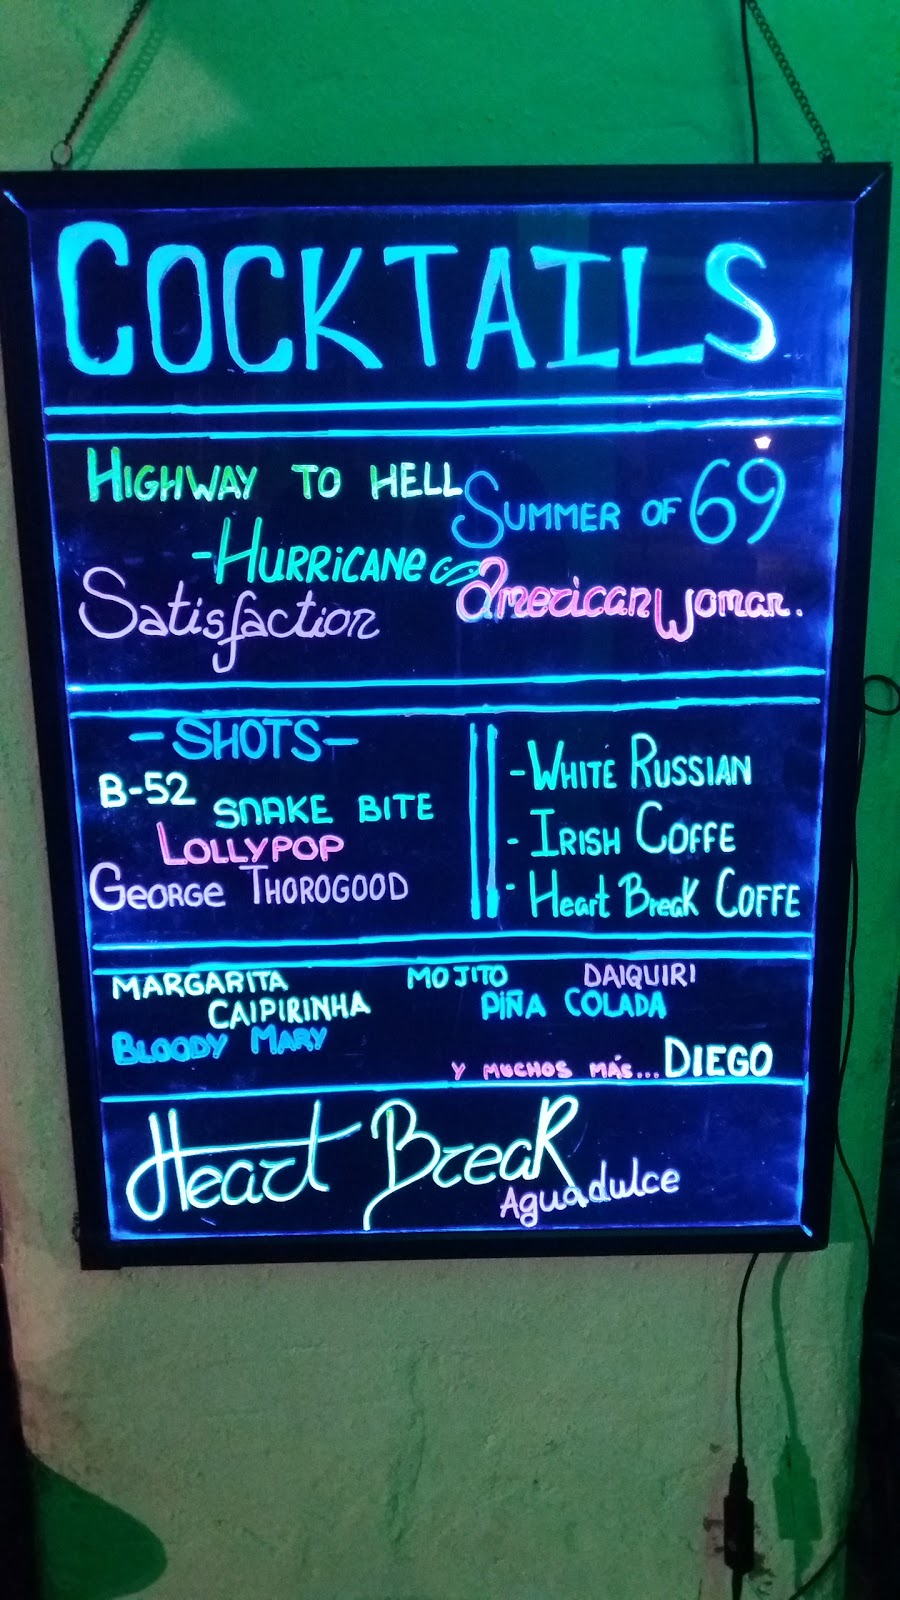 COCKTAILS
HIGHWAY TO HELL
SUMMER OF 69
-HURRICANE
Satisfaction
American Woman.
-SHOTS-
B-52
SNAKE BITE
LOLLYPOP
GEORGE THOROGOOD
-WHITE RUSSIAN
- IRISH COFFE
- Heart Break COFFE
MARGARITA MOJITO DAIQUIRI
CAIPIRINHA PIÑA COLADA
BLOODY MARY
Y MUCHOS MÁS... DIEGO
Heart Break
Aguadulce